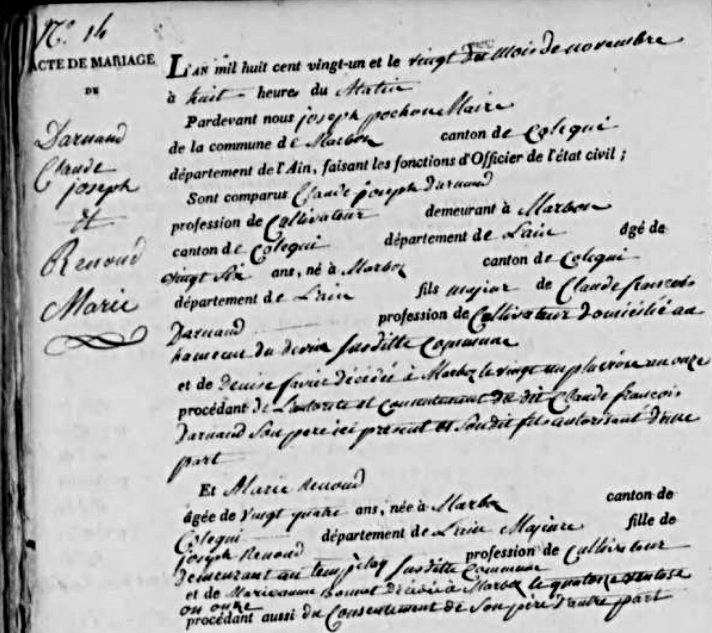 N.º 14
ACTE DE MARIAGE
DE
Darnand
Claude
joseph
et
Renoud
Marie
L'AN mil huit cent vingt-un et le vingt du mois de novembre
à huit heures du Matin
Pardevant nous joseph pochon Maire
de la commune de Marboz canton de Coligni
département de l'Ain, faisant les fonctions d'Officier de l'état civil ;
Sont comparus Claude joseph Darnand
profession de Cultivateur demeurant à Marboz
canton de Coligni département de L'ain âgé de
vingt Six ans, né à Marboz canton de Coligni
département de L'ain fils majeur de Claude françois
Darnand profession de Cultivateur domicilié au
hameau du Susditte Commune
et de Denise favier décédée à Marboz le vingt un pluviose an onze
procédant de L'autorité et Consentement du dit Claude françois
Darnand Son pere ici present et Sondit fils autorisant d'une
part
Et Marie Renoud
âgée de Vingt quatre ans, née à Marboz canton de
Coligni département de L'ain Majeure fille de
joseph Renoud profession de Cultivateur
demeurant au Susditte Commune
et de Marieanne décédée à Marboz le quatorze ventose
an onze
procédant aussi du Consentement de Son père d'autre part